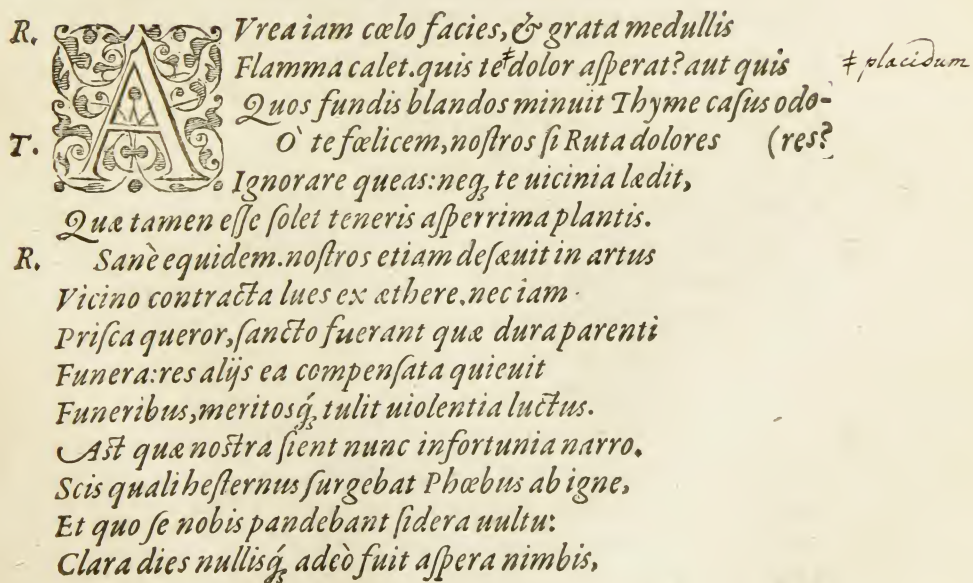 R. AVrea iam cœlo facies, & grata medullis
Flamma calet. quis te ‡ dolor asperat? aut quis ‡ placidum
Quos fundis blandos minuit Thyme casus odo-
T. O` te fœlicem, nostros si Ruta dolores (res?
Ignorare queas: neq; te uicinia lædit,
Quæ tamen esse solet teneris asperrima plantis.
R. Sanè equidem. nostros etiam desæuit in artus
Vicino contracta lues ex æthere. nec iam
Prisca queror, sancto fuerant quæ dura parenti
Funera: res alijs ea compensata quieuit
Funeribus, meritosq́; tulit uiolentia luctus.
Ast quæ nostra sient nunc infortunia narro.
Scis quali hesternus surgebat Phœbus ab igne,
Et quo se nobis pandebant sidera uultu:
Clara dies nullisq́; adeò fuit aspera nimbis,